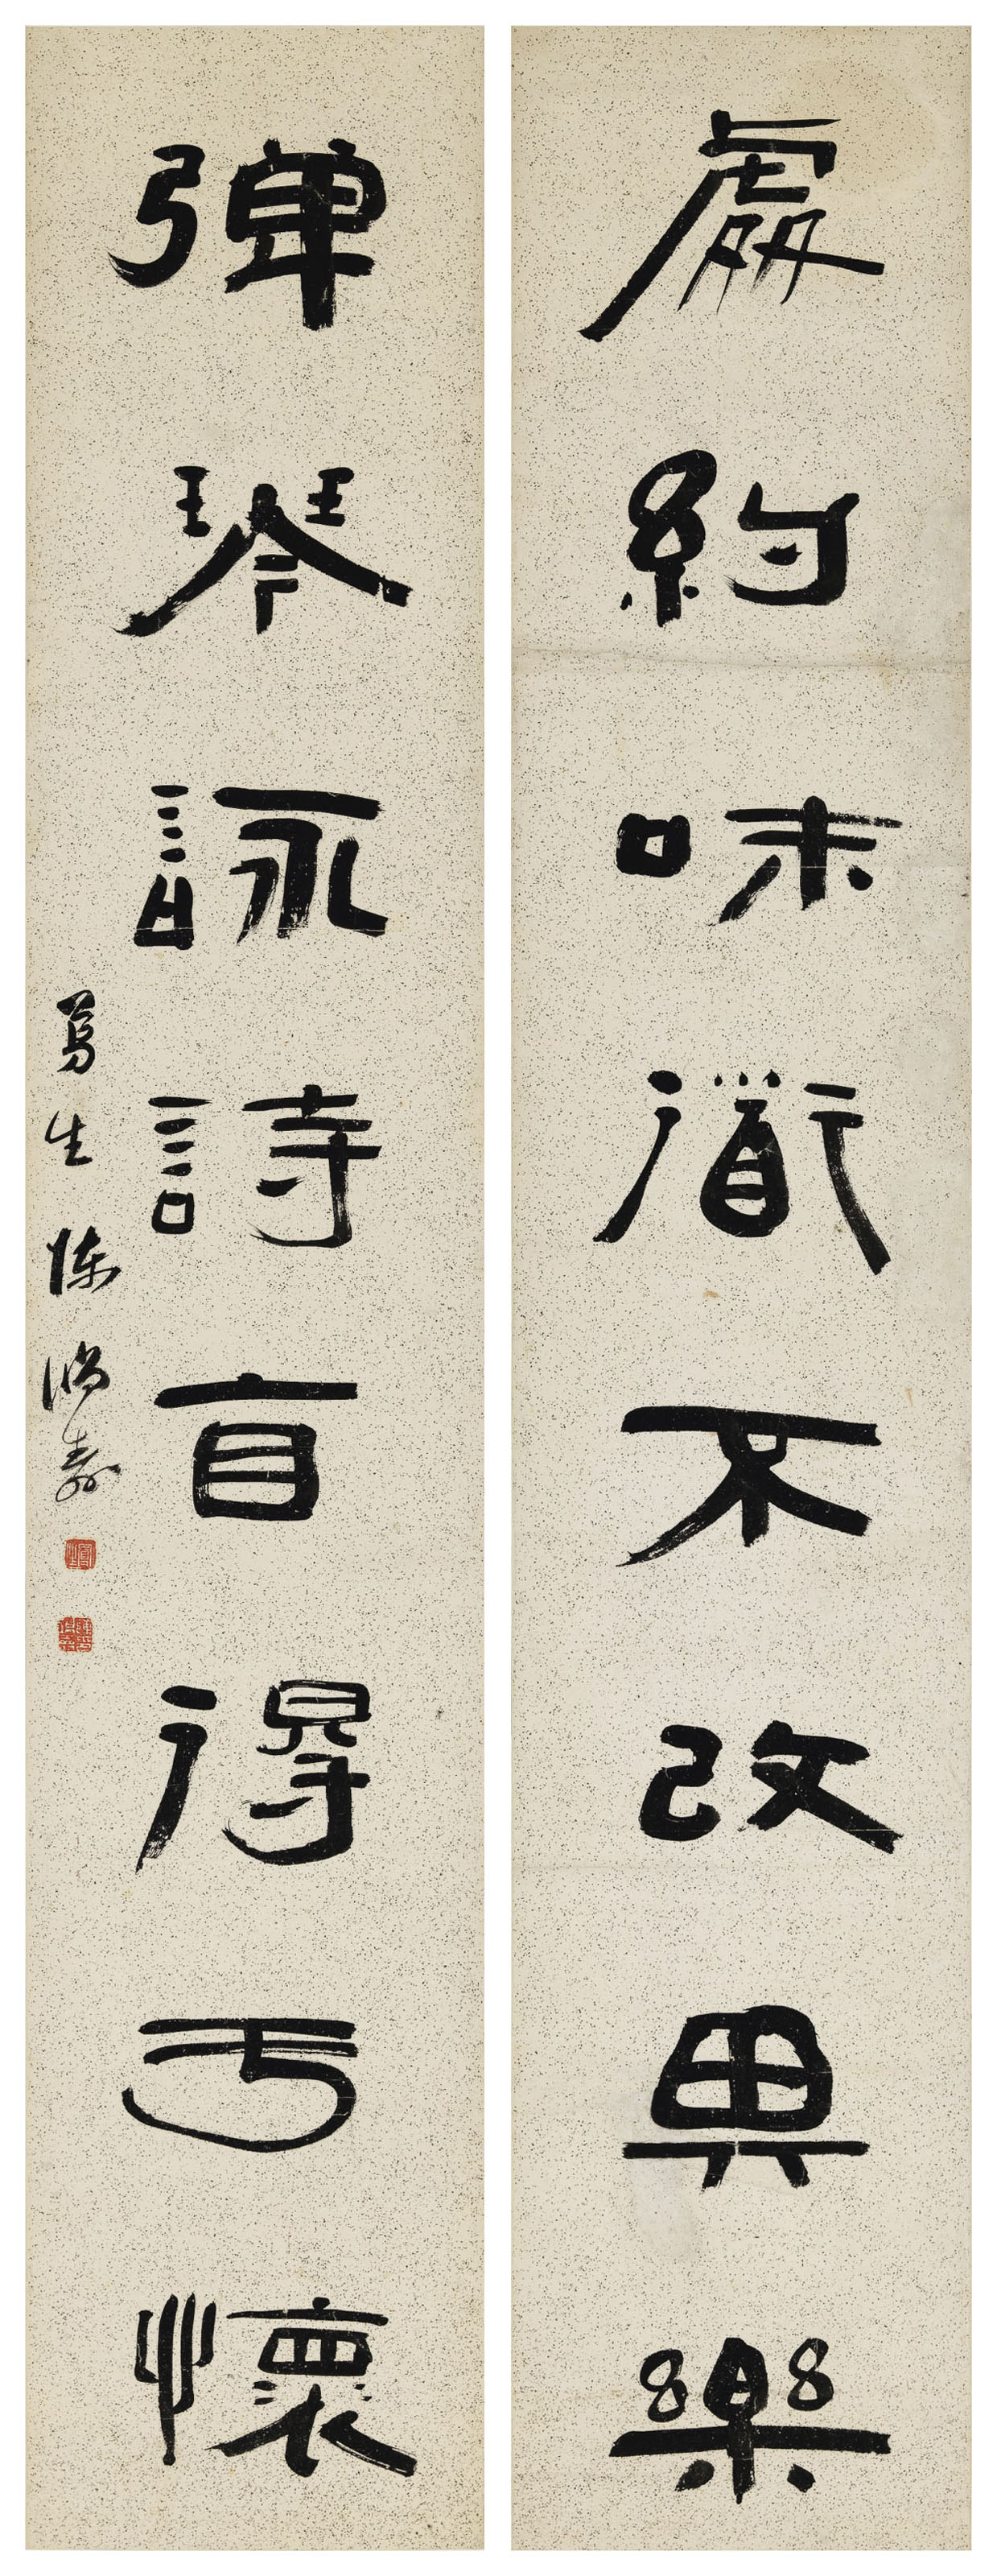 處約味衟不改其樂
彈琴詠詩自得于懷
曼生陳鴻壽